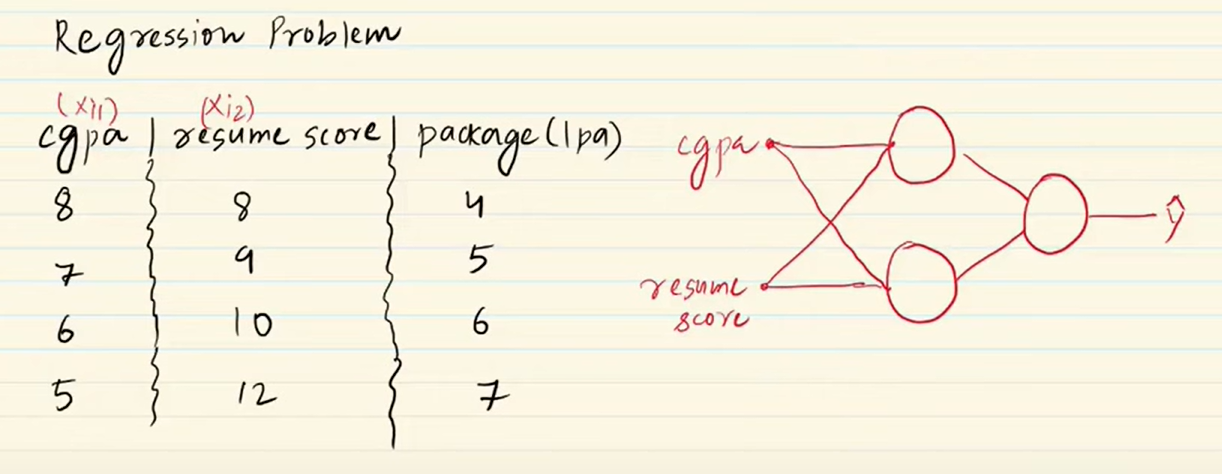 Regression Problem
(xi1) (xi2)
cgpa | resume score | package (lpa)
8 8 4
7 9 5
6 10 6
5 12 7
cgpa
resume
score
ŷ